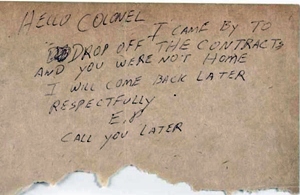 HELLO COLONEL
I CAME BY TO
DROP OFF THE CONTRACTS
AND YOU WERE NOT HOME
I WILL COME BACK LATER
RESPECTFULLY
E.P.
CALL YOU LATER